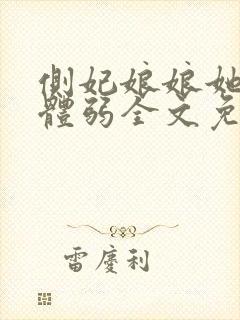 側妃娘娘她
體弱全文免
雷慶利